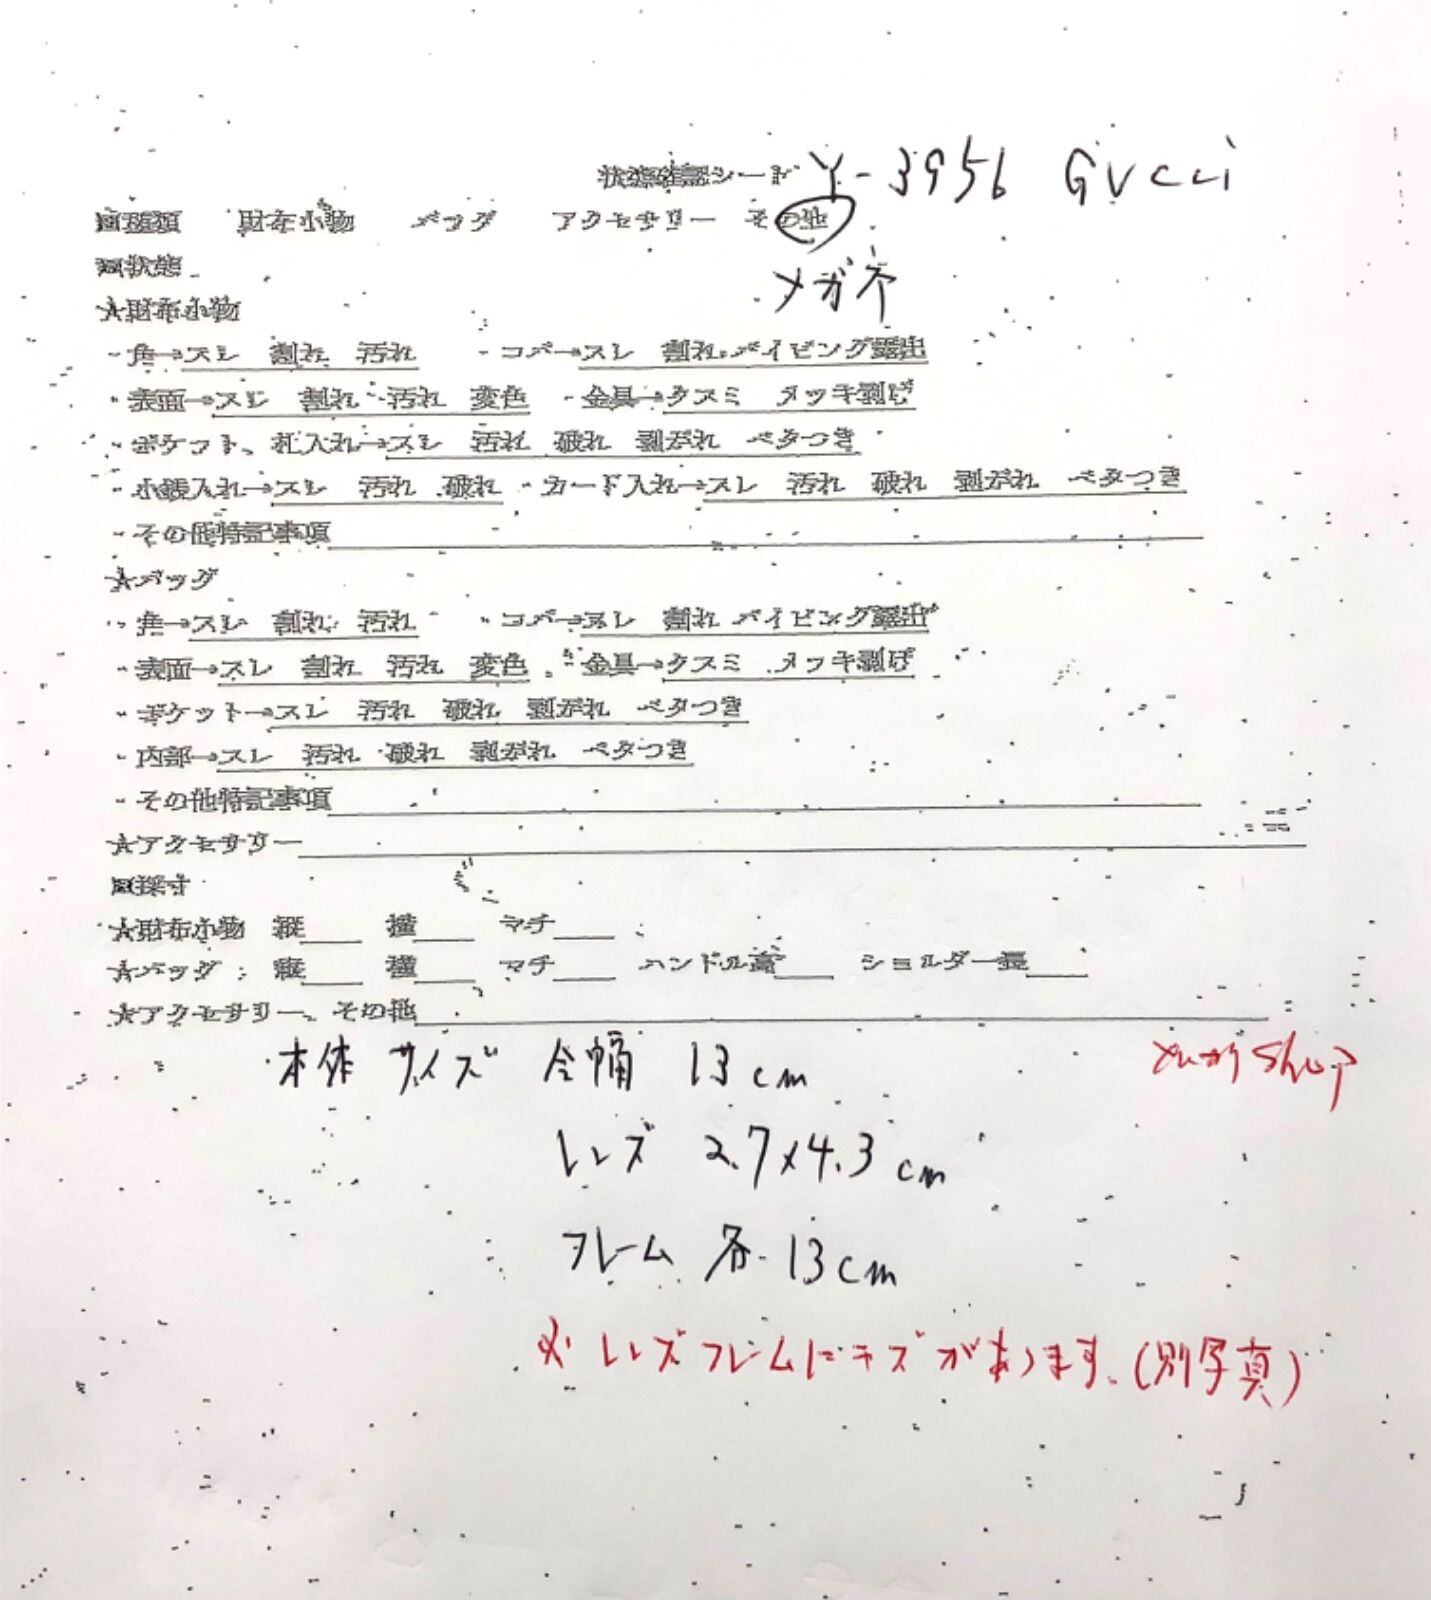 状態確認シート Y-3956 GUCCI
■種類 財布小物 バッグ アクセサリー その他
メガネ
■状態
★財布小物
・角→スレ 割れ 汚れ ・コバ→スレ 割れ パイピング露出
・表面→スレ 割れ 汚れ 変色 ・金具→クスミ メッキ剥げ
・ポケット、札入れ→スレ 汚れ 破れ 剥がれ ベタつき
・小銭入れ→スレ 汚れ 破れ ・カード入れ→スレ 汚れ 破れ 剥がれ ベタつき
・その他特記事項
★バッグ
・角→スレ 割れ 汚れ ・コバ→スレ 割れ パイピング露出
・表面→スレ 割れ 汚れ 変色 ・金具→クスミ メッキ剥げ
・ポケット→スレ 汚れ 破れ 剥がれ ベタつき
・内部→スレ 汚れ 破れ 剥がれ ベタつき
・その他特記事項
★アクセサリー
■採寸
★財布小物 縦 横 マチ
★バッグ 縦 横 マチ ハンドル高 ショルダー長
★アクセサリー、その他
本体サイズ 全幅 13cm
Shop
レンズ 2.7×4.3cm
フレーム 各 13cm
※レンズフレームにキズがあります。(別写真)